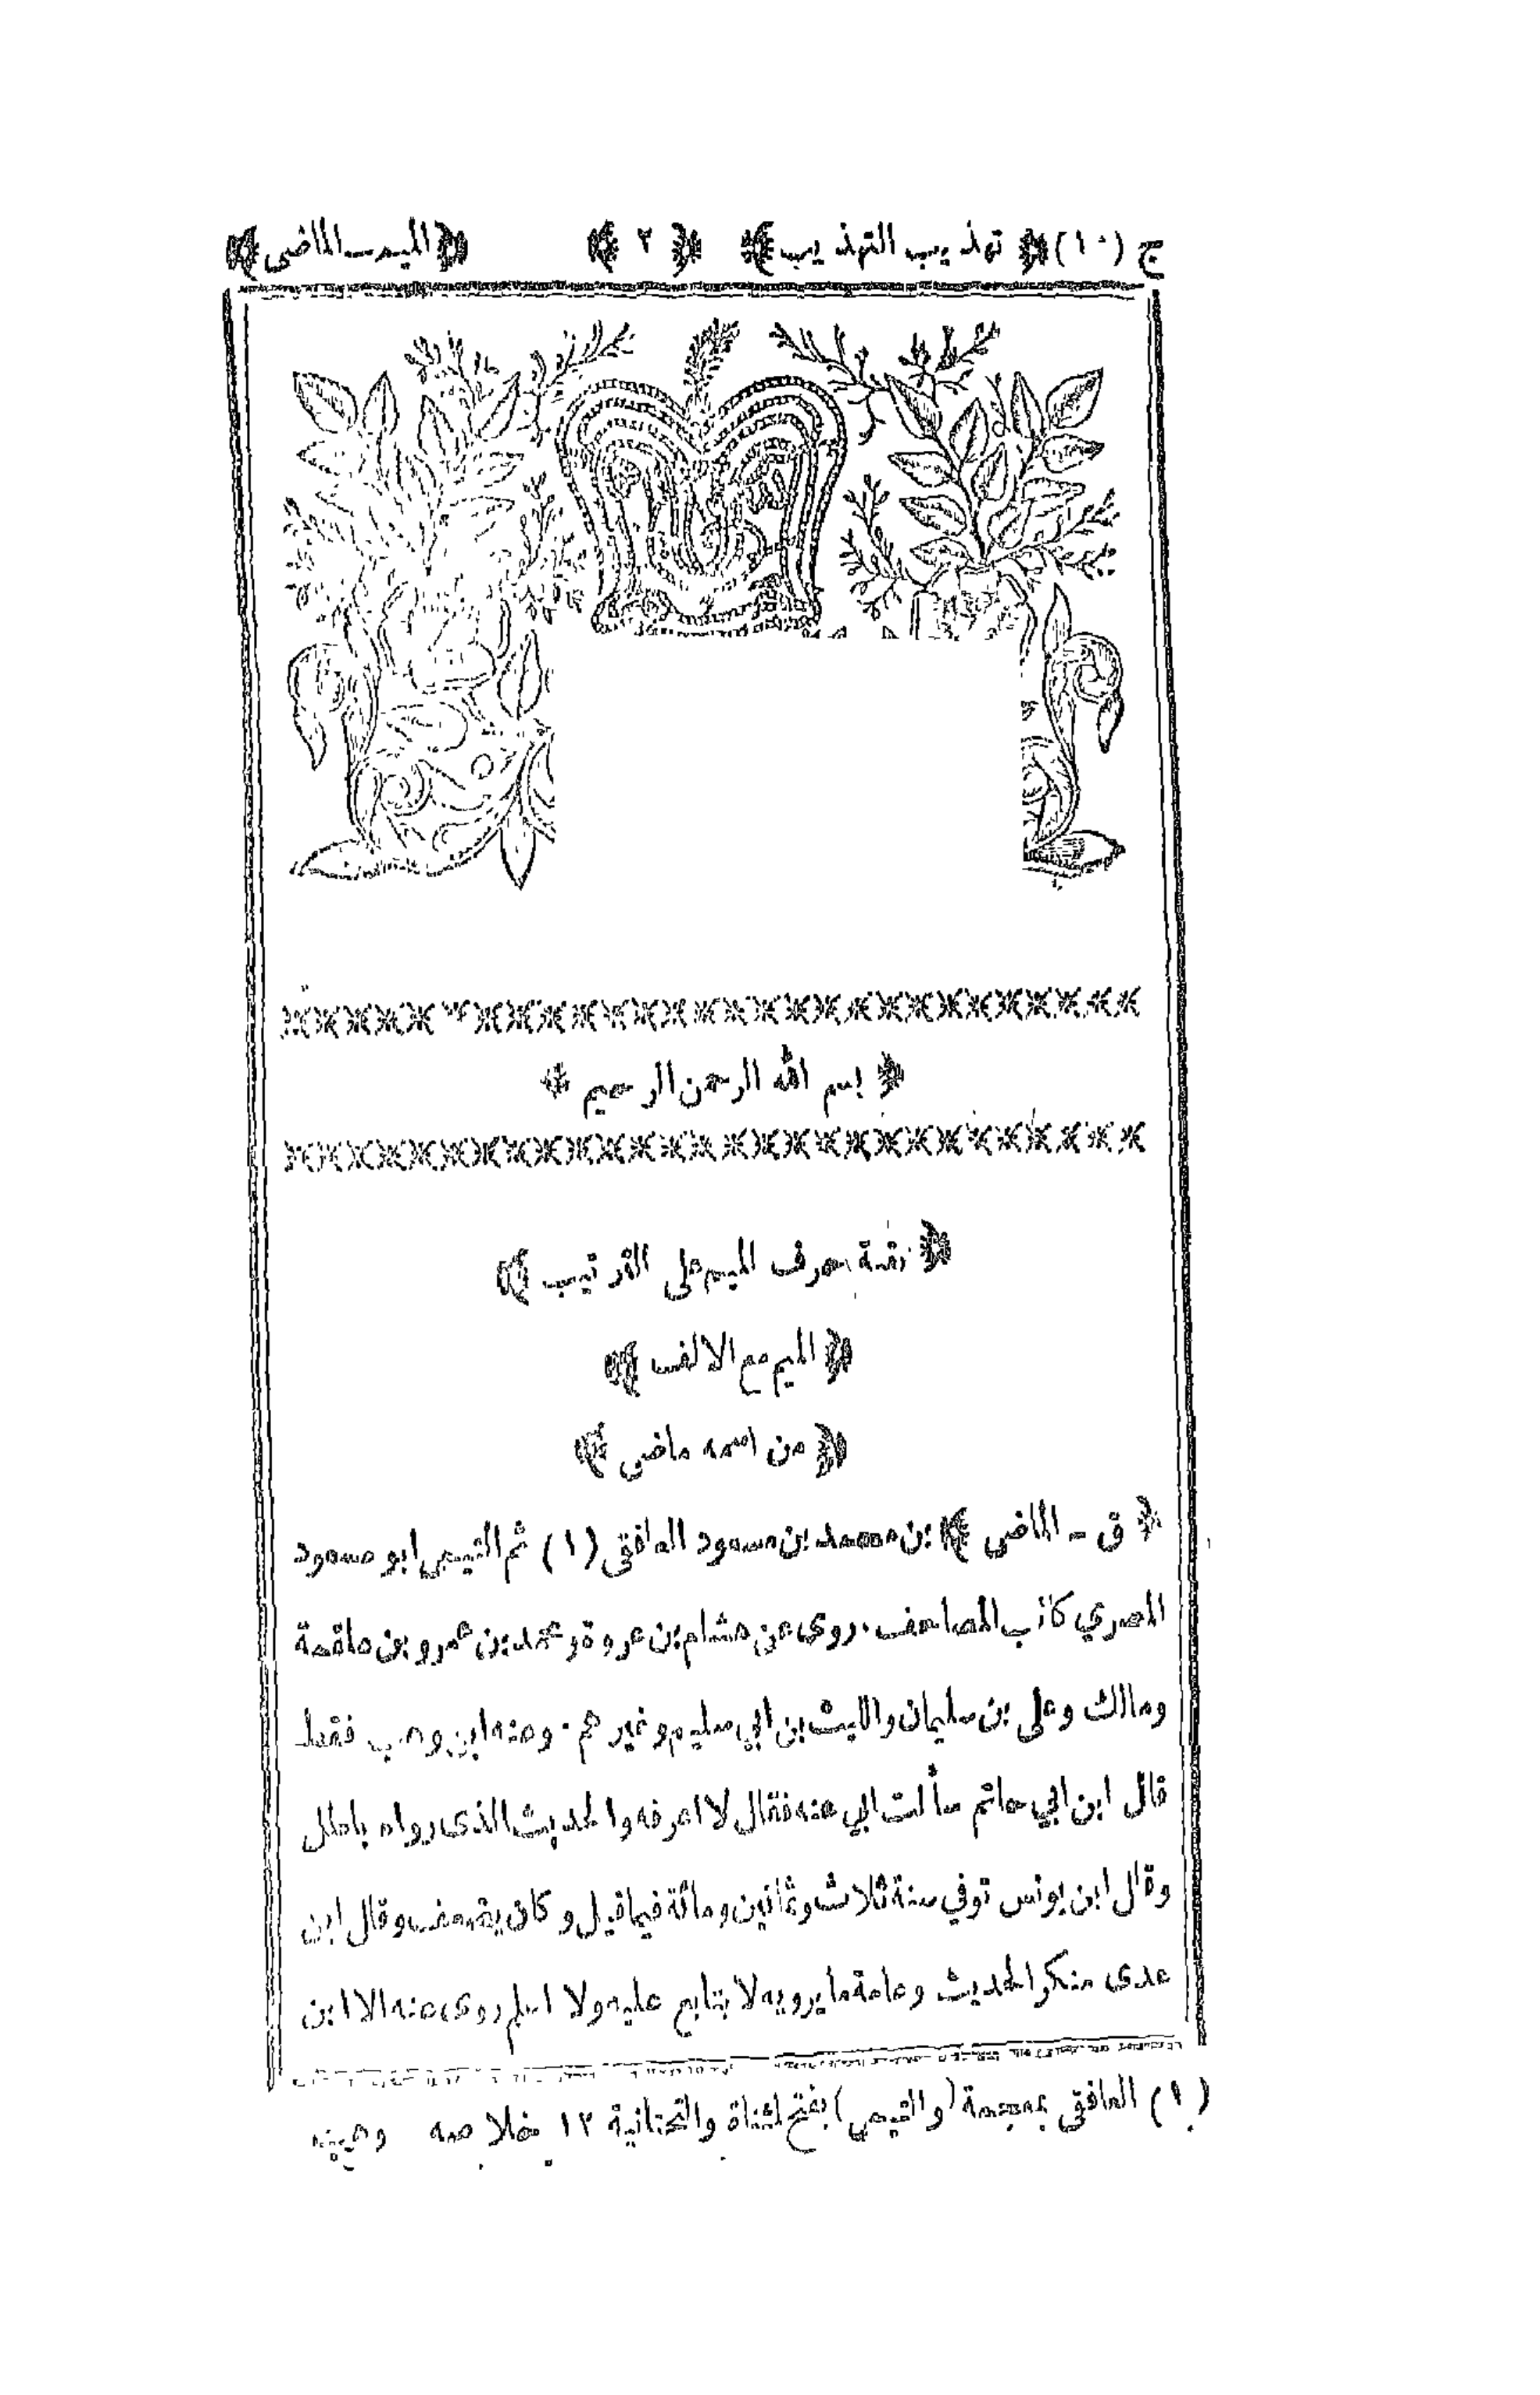 ج (١٠) ﴿ تهذيب التهذيب ﴾ ﴿ ٢ ﴾ ﴿ الميم ـ الماضى ﴾
﴿ بسم الله الرحمن الرحيم ﴾
﴿ بقية حرف الميم على الترتيب ﴾
﴿ الميم مع الالف ﴾
﴿ من اسمه ماضى ﴾
﴿ ق ـ الماضى ﴾ بن محمد بن مسعود الغافقى (١) ثم التيمى ابو مسعود
المصري كاتب المصاحف. روى عن هشام بن عروة ومحمد بن عمرو بن علقمة
ومالك وعلى بن سليمان والليث بن ابي سليم وغيرهم. وعنه ابن وهب فقط
قال ابن ابي حاتم سألت ابي عنه فقال لا اعرفه والحديث الذى رواه باطل
وقال ابن يونس توفي سنة ثلاث وثمانين ومائة فيما قيل وكان يضعف وقال ابن
عدى منكر الحديث وعامة ما يرويه لا يتابع عليه ولا اعلم روى عنه الا ابن
(١) الغافقى بمعجمة (والتيمى) بفتح المثناة والتحتانية ١٢ خلاصه وهب